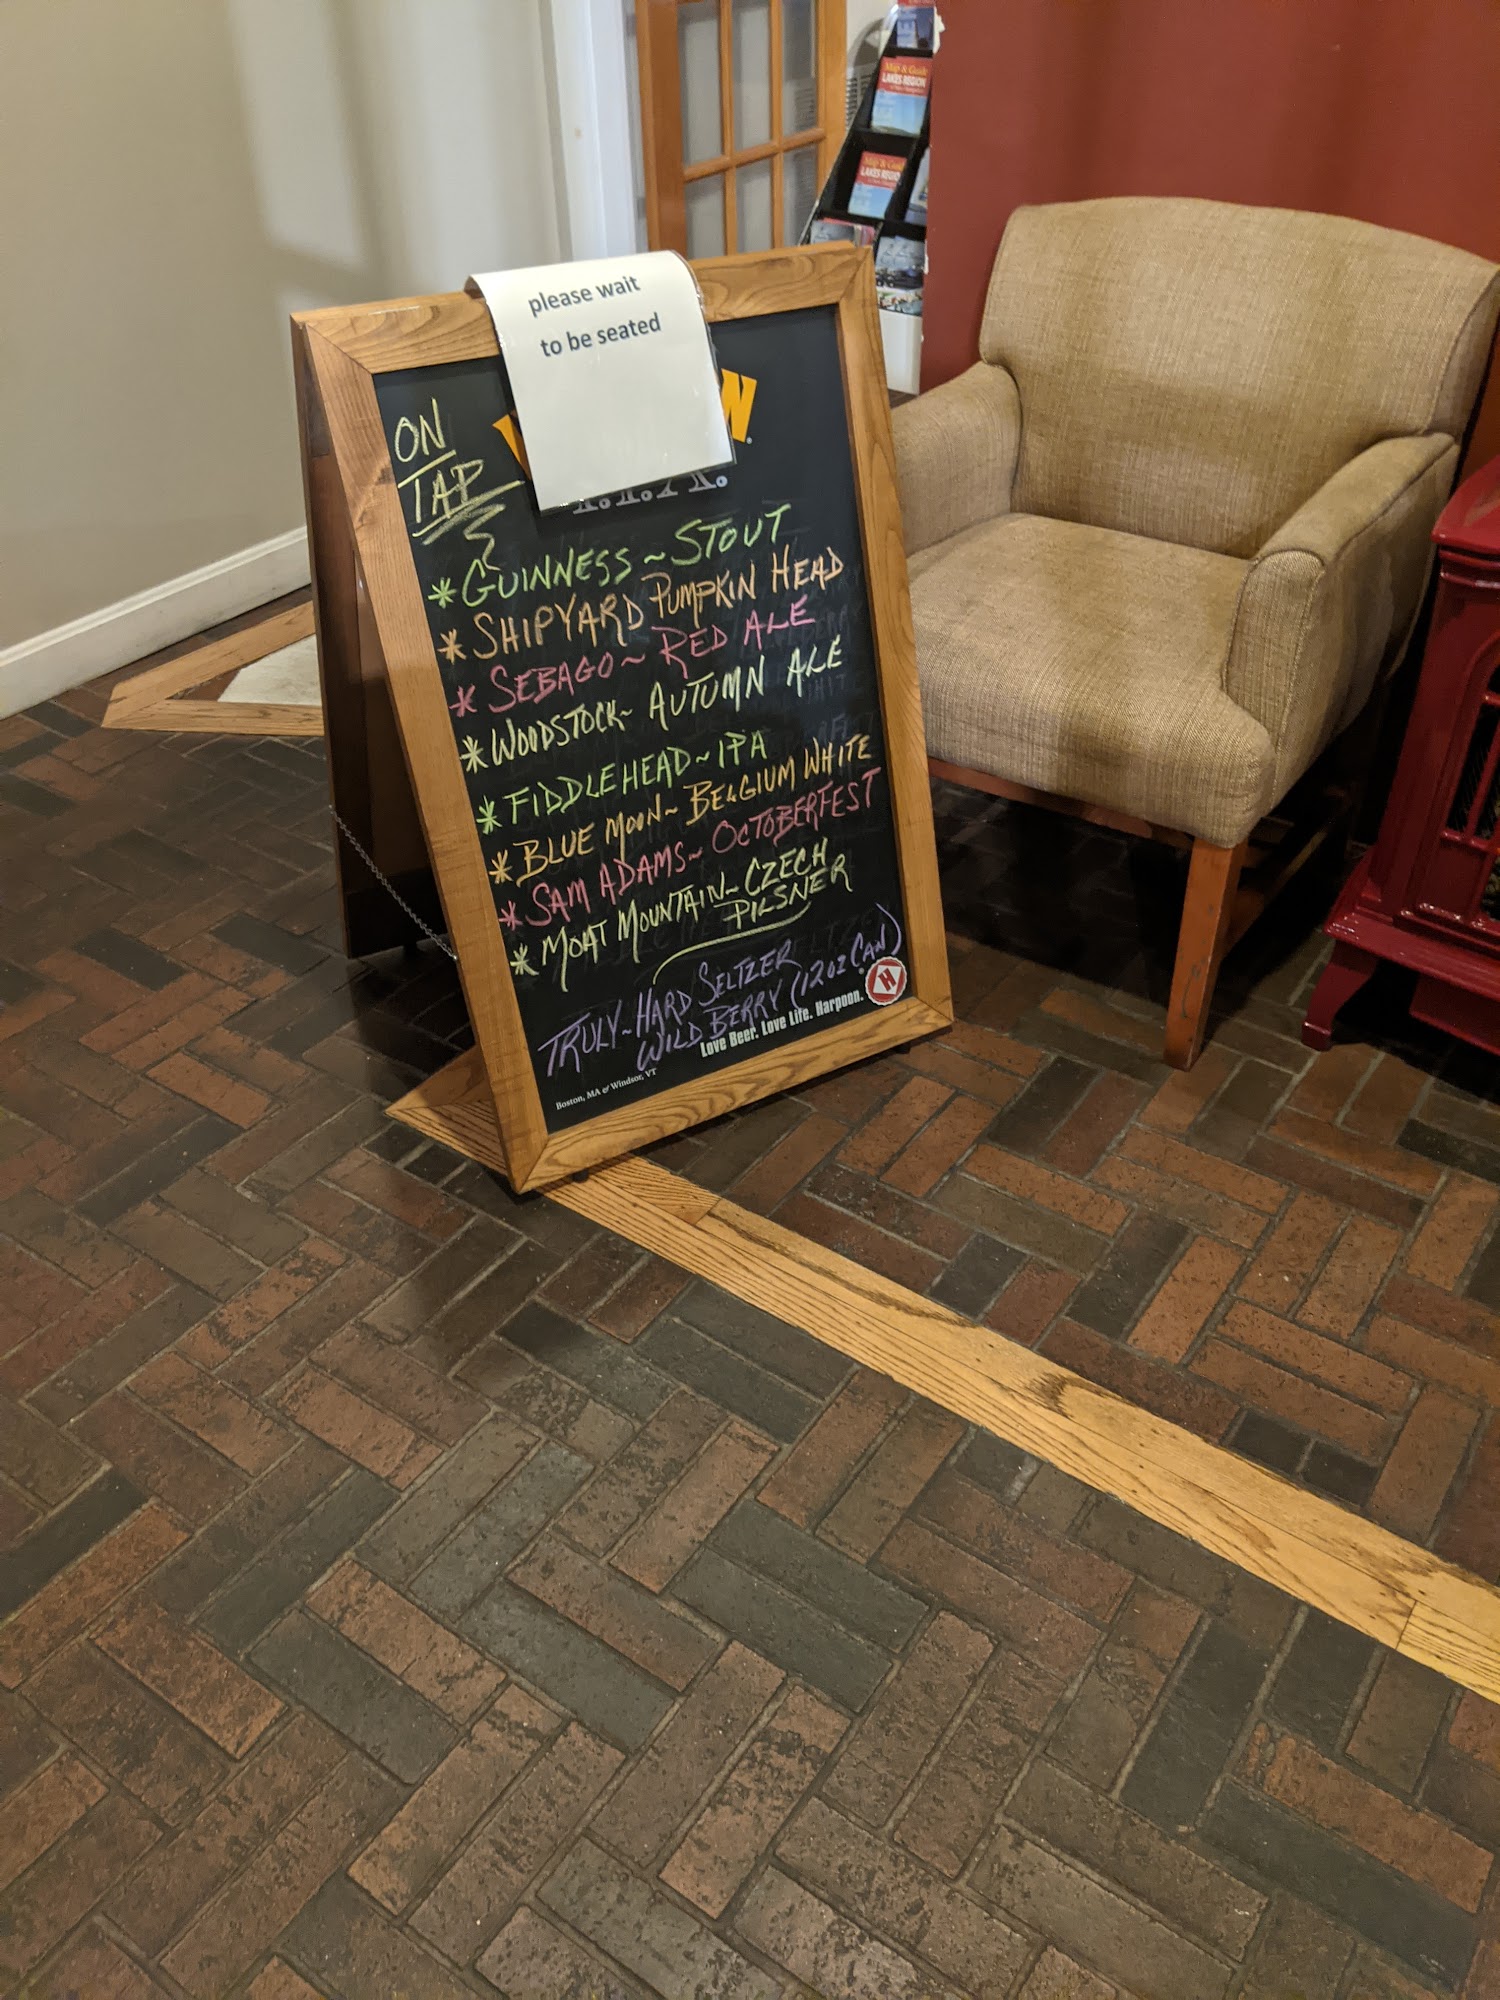 Map & Guide
LAKES REGION
Map & Guide
LAKES REGION
please wait
to be seated
ON
TAP
I.P.A.
* GUINNESS ~ STOUT
* SHIPYARD PUMPKIN HEAD
* SEBAGO ~ RED ALE
* WOODSTOCK ~ AUTUMN ALE
* FIDDLEHEAD ~ IPA
* BLUE MOON ~ BELGIUM WHITE
* SAM ADAMS ~ OCTOBERFEST
* MOAT MOUNTAIN ~ CZECH
PILSNER
TRULY ~ HARD SELTZER
WILD BERRY (12 OZ CAN)
H
Love Beer. Love Life. Harpoon.
Boston, MA & Windsor, VT